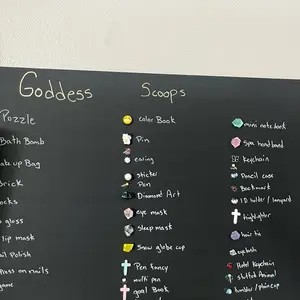 Goddess Scoops
Pozzle
Bath Bomb
ake up Bag
Brick
ocks
gloss
lip mask
ail Polish
Pass on nails
game
color Book
Pin
earing
sticker
Pen
Diamond Art
eye mask
sleep mask
Snow globe cup
Pen fancy
multi pen
goal Book
mini notebook
Spa headband
Keychain
Pencil case
Bookmark
I.D wilder / lanyard
highlighter
hair tie
eyelash
Hotel Keychain
stuffed Animal
tumbler / plain cup